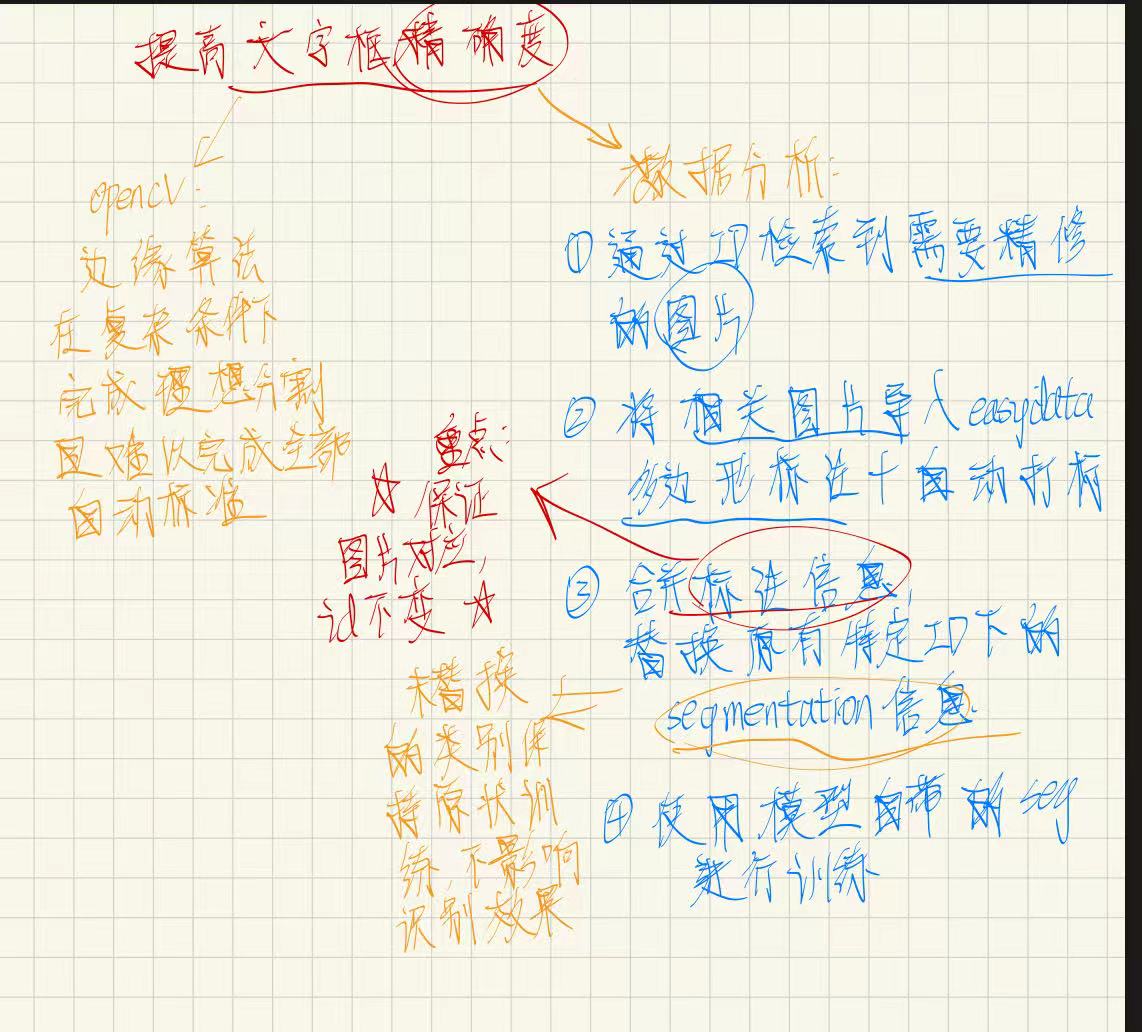 提高文字框精确度
opencv:
边缘算法
在复杂条件下
完成理想分割
且难以完成全部
自动标准
数据分析:
①通过ID检索到需要精修
的图片
②将相关图片导入easydata
多边形标注+自动打标
③合并标注信息,
替换原有特定ID下的
segmentation信息.
④使用模型自带的seg
进行训练
重点:
☆保证
图片对应,
id不变☆
未替换
的类别保
持原状训
练,不影响
识别效果